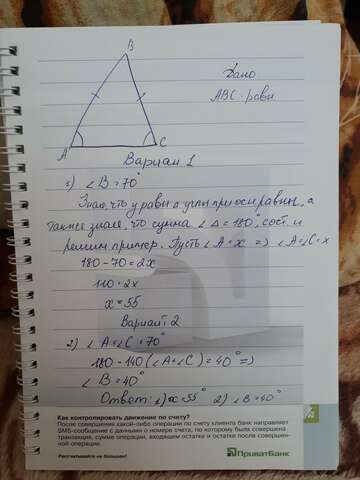 B
Дано
ABC - равн
A
C
Вариант 1
1) ∠B = 70°
Знаю, что у равн Δ углы при осн равны, а
также знаем, что сумма ∠Δ = 180°, сост. и
решим пример. Пусть ∠A = x => ∠A = ∠C = x
180 - 70 = 2x
110 = 2x
x = 55
Вариант 2
2) ∠A = ∠C = 70°
180 - 140 (∠A + ∠C) = 40° =>
∠B = 40°
Ответ: 1) x = 55° 2) ∠B = 40°
Как контролировать движение по счету?
После совершения какой-либо операции по счету клиента банк направляет
SMS-сообщение с данными о номере счета, по которому была совершена
транзакция, сумме операции, входящем остатке и остатке после совершен-
ной операции.
Рассчитывайте на большее!
ПриватБанк